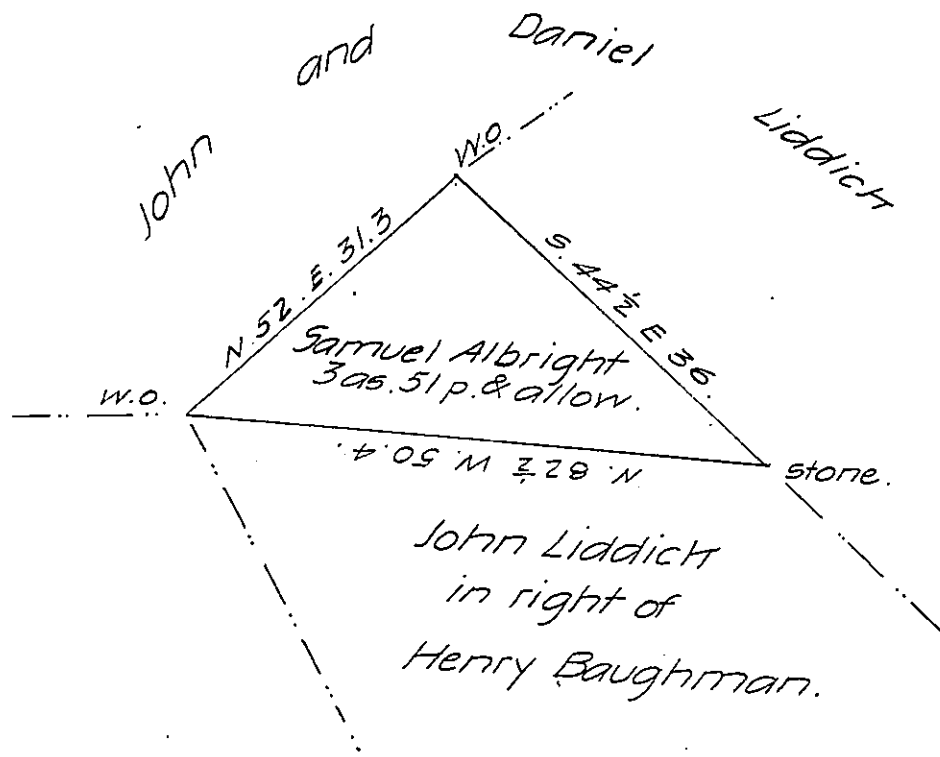 John and Daniel Liddick
W.O.
N. 52. E. 31.3
S. 44½ E 36.
Samuel Albright
3 as. 51 p. & allow.
W.O.
N. 82½ W. 50.4.
stone.
John Liddick
in right of
Henry Baughman.